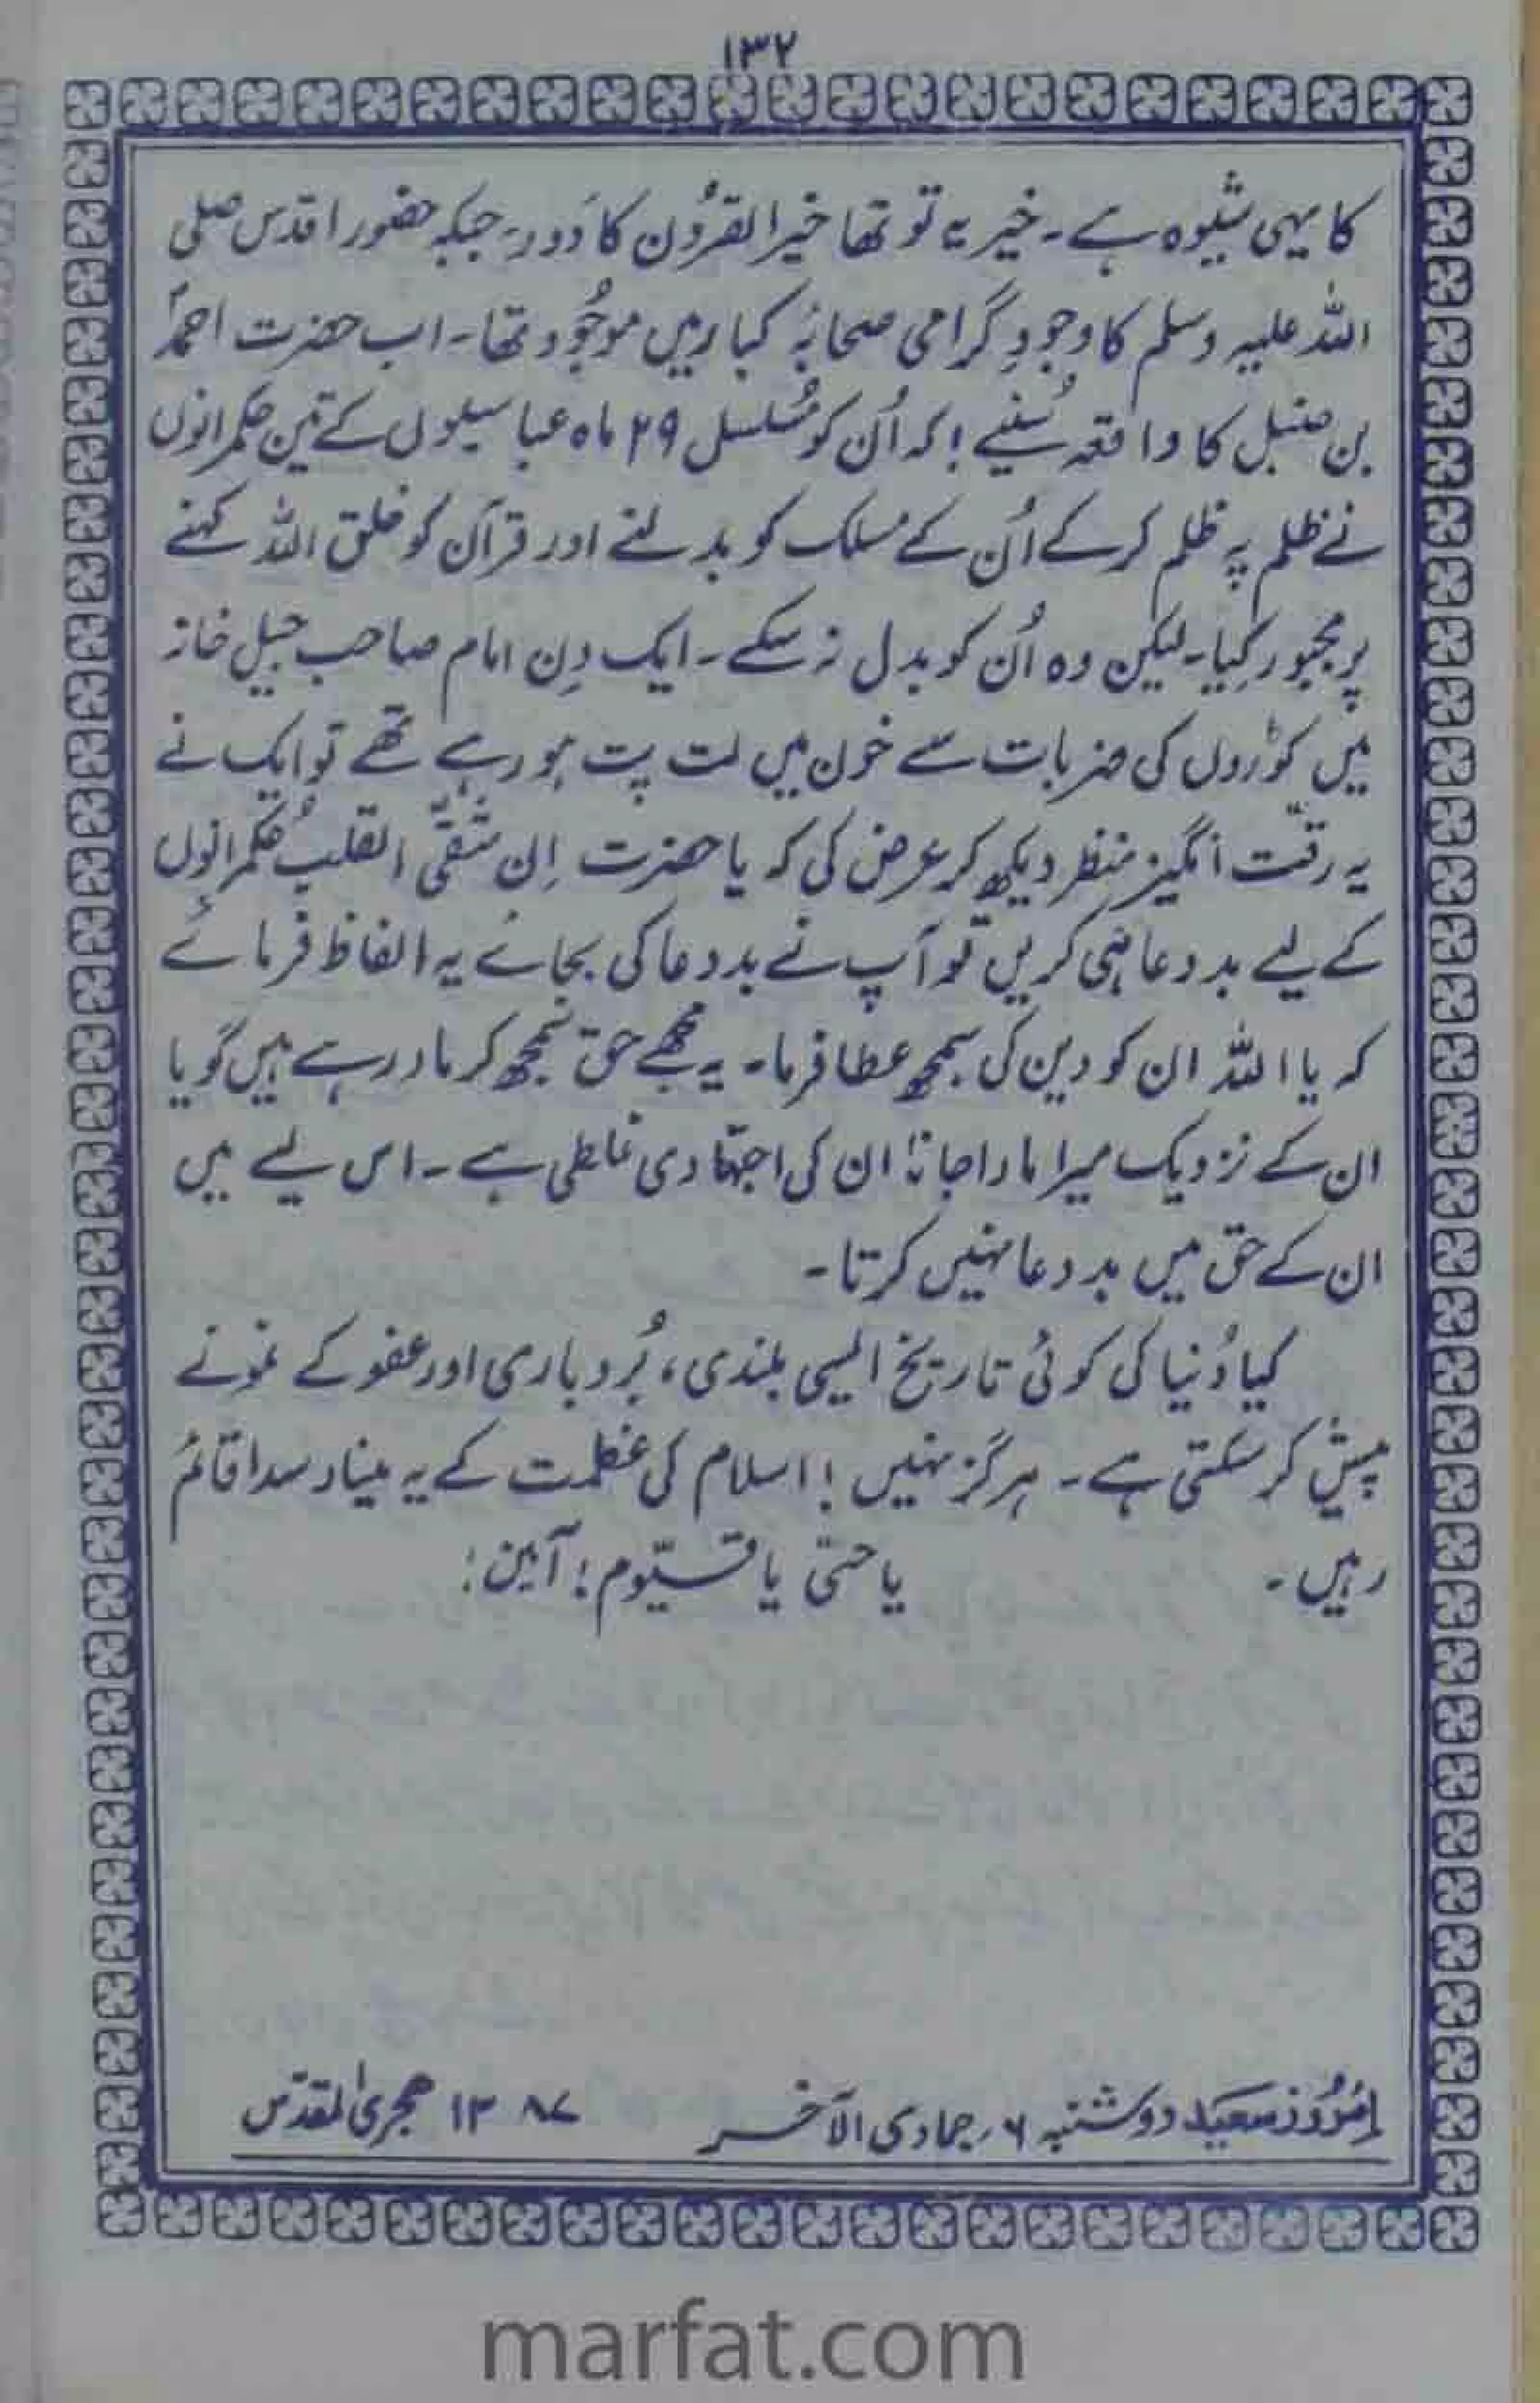 ۱۳۲
کا یہی شیوہ ہے۔ خیر یہ تو تھا خیر القرُون کا دَور۔ جبکہ حضور اقدس صلی
اللہ علیہ وسلم کا وجودِ گرامی صحابۂ کبار میں موجُود تھا۔ اب حضرت احمدؒ
بن حنبل کا واقعہ سُنیے ! کہ اُن کو مُسلسل ۲۹ ماہ عباسیوں کے تین حکمرانوں
نے ظلم پہ ظلم کر کے اُن کے مسلک کو بدلنے اور قرآن کو خلق اللہ کہنے
پر مجبور کِیا۔ لیکن وہ اُن کو بدل نہ سکے۔ ایک دِن امام صاحب جیل خانہ
میں کوڑوں کی ضربات سے خون میں لت پت ہو رہے تھے تو ایک نے
یہ رقّت انگیز منظر دیکھ کر عرض کی کہ یا حضرت اِن شقّی القلب حُکمرانوں
کے لیے بد دعا ہی کریں تو آپ نے بددعا کی بجائے یہ الفاظ فرمائے
کہ یا اللہ ان کو دین کی سمجھ عطا فرما۔ یہ مجھے حق سمجھ کر مار رہے ہیں گویا
ان کے نزدیک میرا مارا جانا ان کی اجتہادی غلطی ہے۔ اس لیے میں
ان کے حق میں بددعا نہیں کرتا۔
کیا دُنیا کی کوئی تاریخ ایسی بلندی، بُردباری اور عفو کے نمونے
پیش کر سکتی ہے۔ ہرگز نہیں ! اسلام کی عظمت کے یہ مینار سدا قائم
رہیں۔ یا حیّ یا قیّوم ! آمین !
اِمرُوز سعید دوشنبہ ۶ر جمادی الآخر ۱۳۸۷ ہجری المقدّس
marfat.com